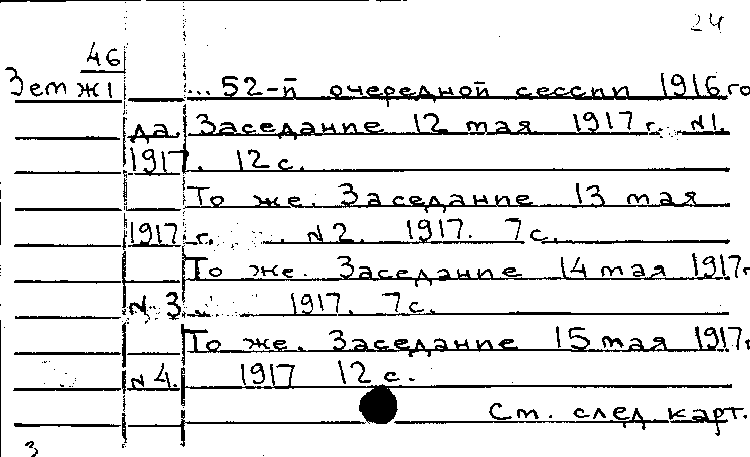 24
46
Зет ж1 ... 52-й очередной сессии 1916 го
да. Заседание 12 мая 1917 г. №1.
1917. 12 с.
То же. Заседание 13 мая
1917 г. №2. 1917. 7 с.
То же. Заседание 14 мая 1917 г
№ 3. 1917. 7 с.
То же. Заседание 15 мая 1917 г
№ 4. 1917 12 с.
См. след. карт.
3